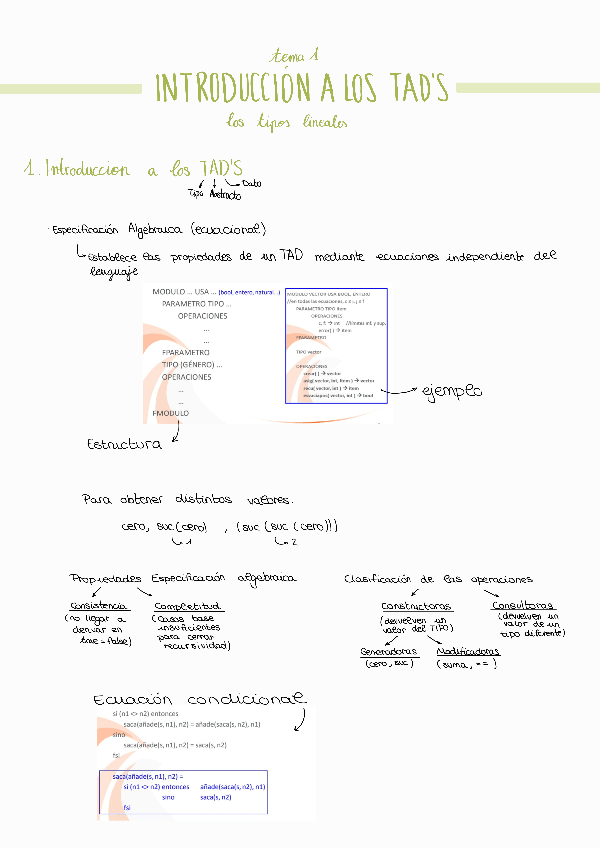 tema 1
INTRODUCCIÓN A LOS TAD'S
los tipos lineales
1. Introduccion a los TAD'S
Tipo Abstracto Dato
· Especificación Algebraica (ecuacional)
Establece las propiedades de un TAD mediante ecuaciones independiente del
lenguaje
MODULO ... USA ... (bool, entero, natural...)
PARAMETRO TIPO ...
OPERACIONES
...
...
FPARAMETRO
TIPO (GÉNERO) ...
OPERACIONES
...
...
FMODULO
MODULO VECTOR USA BOOL, ENTERO
PARAMETRO TIPO item
OPERACIONES
c, f: → int //límites inf. y sup.
error( ) → item
FPARAMETRO
TIPO vector
OPERACIONES
crear( ) → vector
asig( vector, int, item ) → vector
recu( vector, int ) → item
esvaciapos( vector, int ) → bool
ejemplo
Estructura
Para obtener distintos valores.
cero, suc(cero) , (suc (suc (cero)))
1
2
Propiedades Especificación algebraica
Consistencia
(no llegar a
derivar en
true = false)
Completitud
(casos base
insuficientes
para cerrar
recursividad)
Clasificación de las operaciones
Constructoras
(devuelven un
valor del TIPO)
Consultoras
(devuelven un
valor de un
tipo diferente)
Generadoras
(cero, suc)
Modificadoras
(suma, == )
Ecuación condicional
si (n1 <> n2) entonces
saca(añade(s, n1), n2) = añade(saca(s, n2), n1)
sino
saca(añade(s, n1), n2) = saca(s, n2)
fsi
saca(añade(s, n1), n2) =
si (n1 <> n2) entonces añade(saca(s, n2), n1)
sino saca(s, n2)
fsi